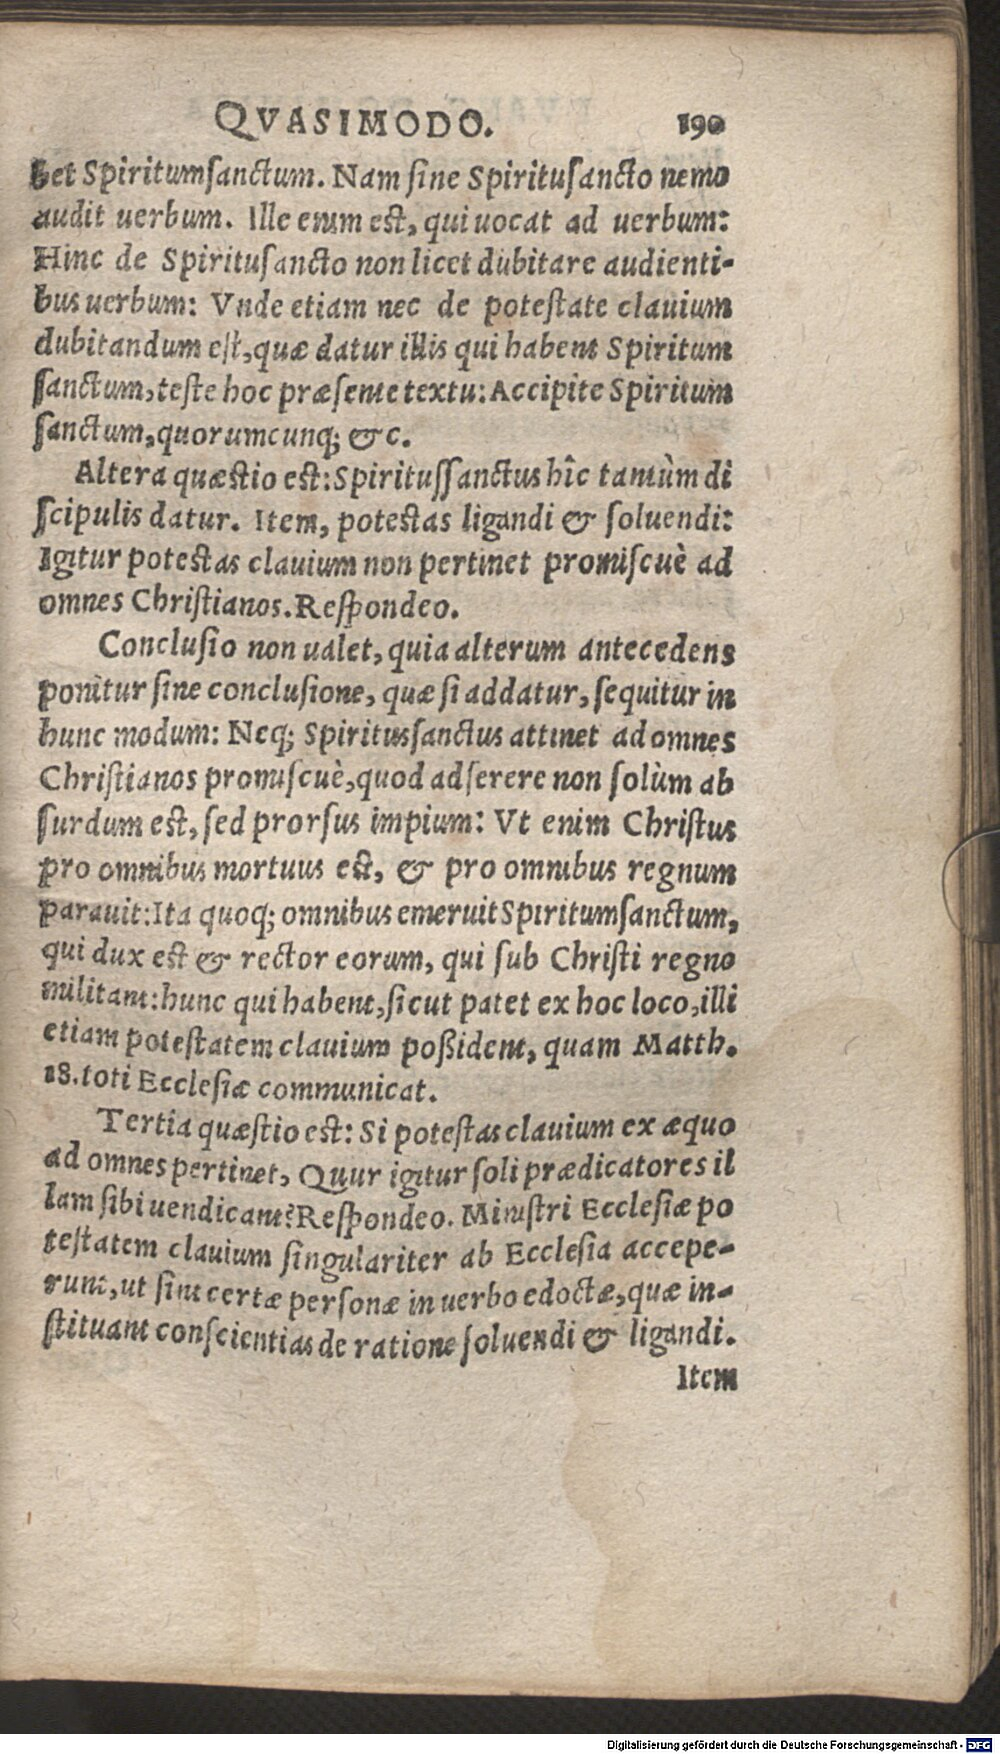 QVASIMODO. 190
bet Spiritumſanctum. Nam ſine Spirituſancto nemo
audit uerbum. Ille enim est, qui uocat ad uerbum:
Hinc de Spirituſancto non licet dubitare audienti-
bus uerbum: Vnde etiam nec de poteſtate clauium
dubitandum eſt, quæ datur illis qui habent Spiritum
ſanctum, teſte hoc præſente textu: Accipite Spiritum
ſanctum, quorumcunq; &c.
Altera quæſtio est: Spirituſſanctus hîc tantùm di
ſcipulis datur. Item, poteſtas ligandi & ſoluendi:
Igitur poteſtas clauium non pertinet promiſcuè ad
omnes Chriſtianos. Reſpondeo.
Concluſio non ualet, quia alterum antecedens
ponitur ſine concluſione, quæ ſi addatur, ſequitur in
hunc modum: Neq; Spiritusſanctus attinet ad omnes
Chriſtianos promiſcuè, quod adſerere non ſolùm ab
ſurdum est, ſed prorſus impium: Vt enim Chriſtus
pro omnibus mortuus est, & pro omnibus regnum
parauit: Ita quoq; omnibus emeruit Spiritumſanctum,
qui dux est & rector eorum, qui ſub Chriſti regno
militant: hunc qui habent, ſicut patet ex hoc loco, illi
etiam poteſtatem clauium poßident, quam Matth.
18. toti Eccleſiæ communicat.
Tertia quæſtio est: Si poteſtas clauium ex æquo
ad omnes pertinet, Quur igitur ſoli prædicatores il
lam ſibi uendicant? Reſpondeo. Miniſtri Eccleſiæ po
teſtatem clauium ſingulariter ab Eccleſia accepe-
runt, ut ſint certæ perſonæ in uerbo edoctæ, quæ in-
ſtituant conſcientias de ratione ſoluendi & ligandi.
Item
Digitalisierung gefördert durch die Deutsche Forschungsgemeinschaft - DFG